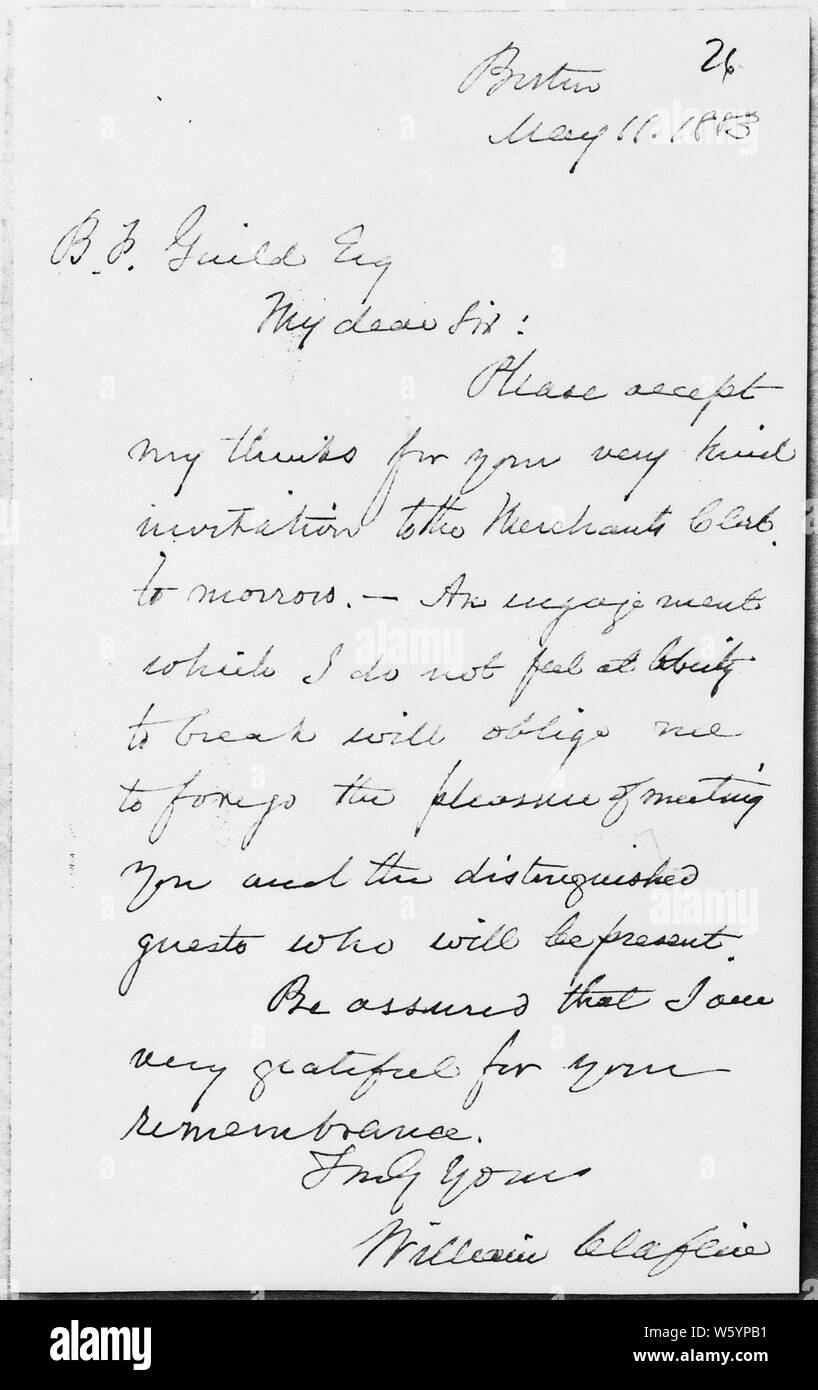 26
Boston
May 11. 1883
B. F. Guild Esq
My dear Sir:
Please accept
my thanks for your very kind
invitation to the Merchants Club.
to morrow. — An engagement
which I do not feel at liberty
to break will oblige me
to forego the pleasure of meeting
you and the distinguished
guests who will be present.
Be assured that I am
very grateful for your
remembrance.
Truly Yours
William Claflin
alamy
a
alamy
Image ID: W5YPB1
www.alamy.com